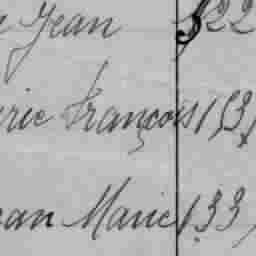 Jean 22
rie François 153
ean Marie 133